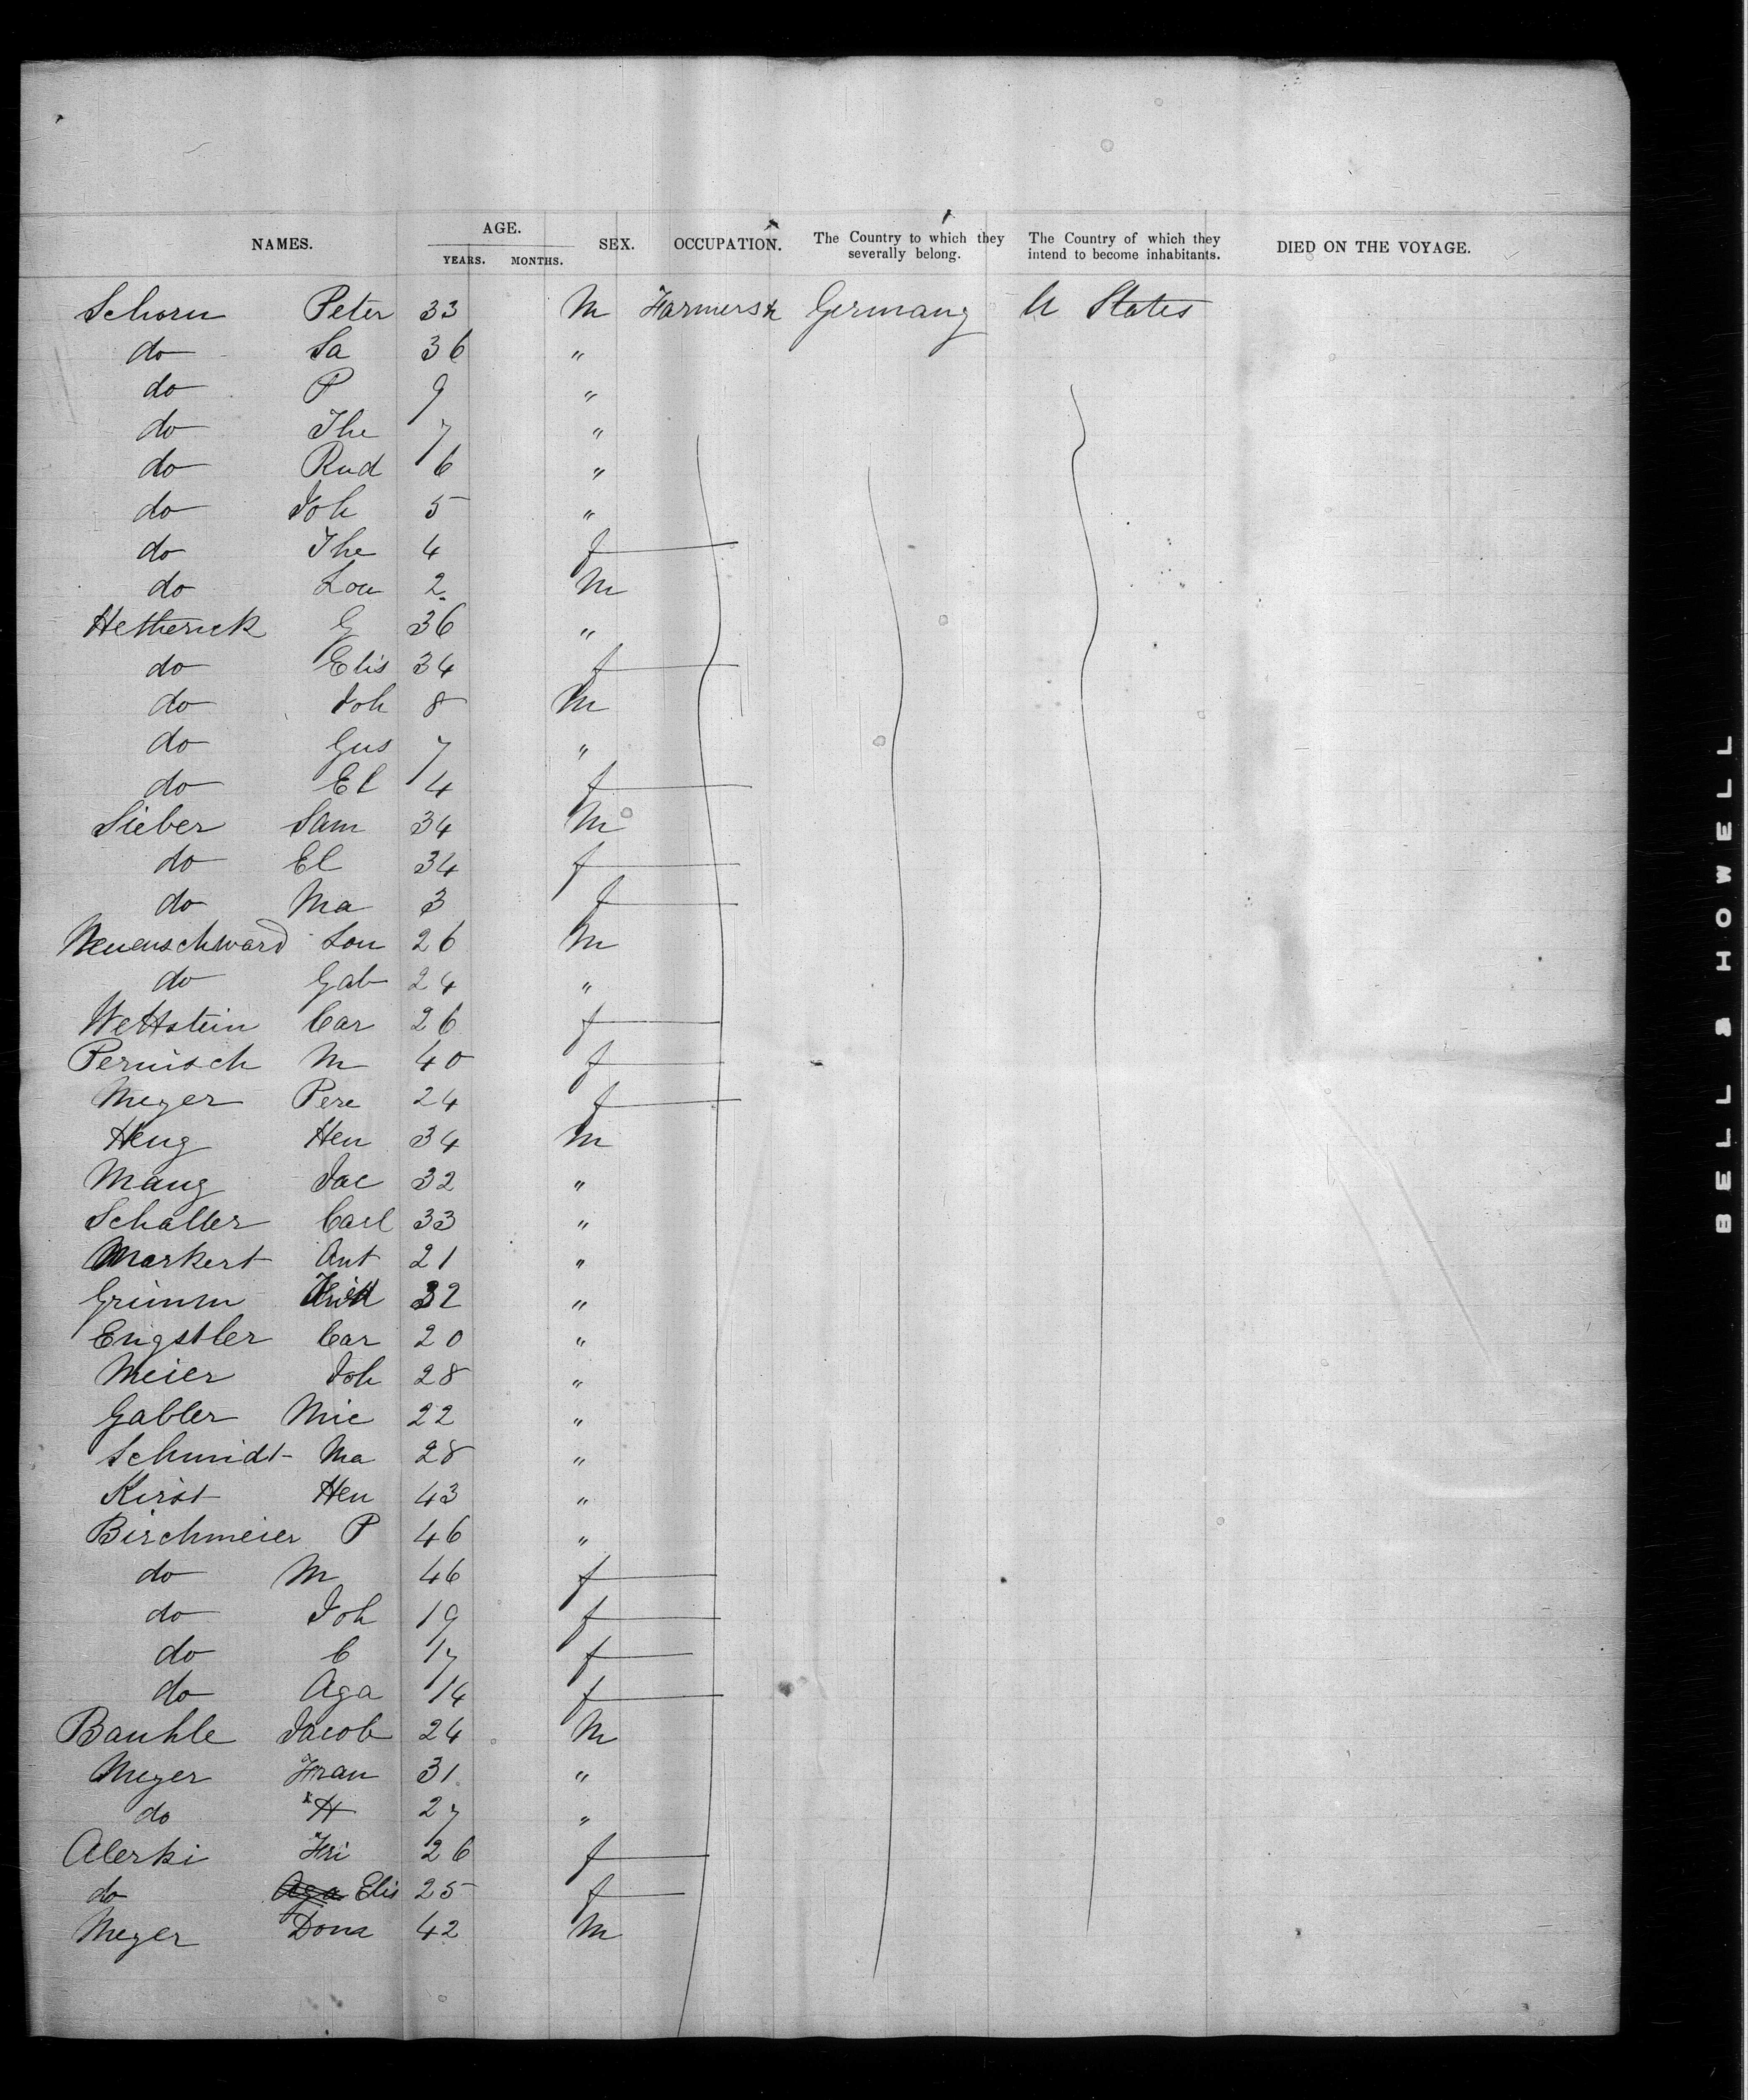 NAMES. AGE. YEARS. MONTHS. SEX. OCCUPATION. The Country to which they severally belong. The Country of which they intend to become inhabitants. DIED ON THE VOYAGE.
Schorn Peter 33 M Farmers & Germany U States
do Sa 36 "
do P 9 "
do The 7 "
do Rud 6 "
do Joh 5 "
do The 4 f
do Lou 2 M
Hetherick G 36 "
do Elis 34 f
do Joh 8 M
do Gus 7 "
do El 4 f
Sieber Sam 34 M
do El 34 f
do Ma 3 f
Neuenschward Lou 26 M
do Gab 24 "
Wettstein Car 26 f
Pernisch M 40 f
Meyer Pere 24 f
Heug Hen 34 M
Maug Jac 32 "
Schaller Carl 33 "
Markert Ant 21 "
Grimm 32 "
Engstler Car 20 "
Meier Joh 28 "
Gabler Mic 22 "
Schmidt Ma 28 "
Kirst Hen 43 "
Birchmeier P 46 "
do M 46 f
do Joh 19 f
do C 17 f
do Aga 14 f
Bauhle Jacob 24 M
Meyer Fran 31 "
do H 27 "
Alerki Fri 26 f
do Aga Elis 25 f
Meyer Dona 42 M
BELL & HOWELL